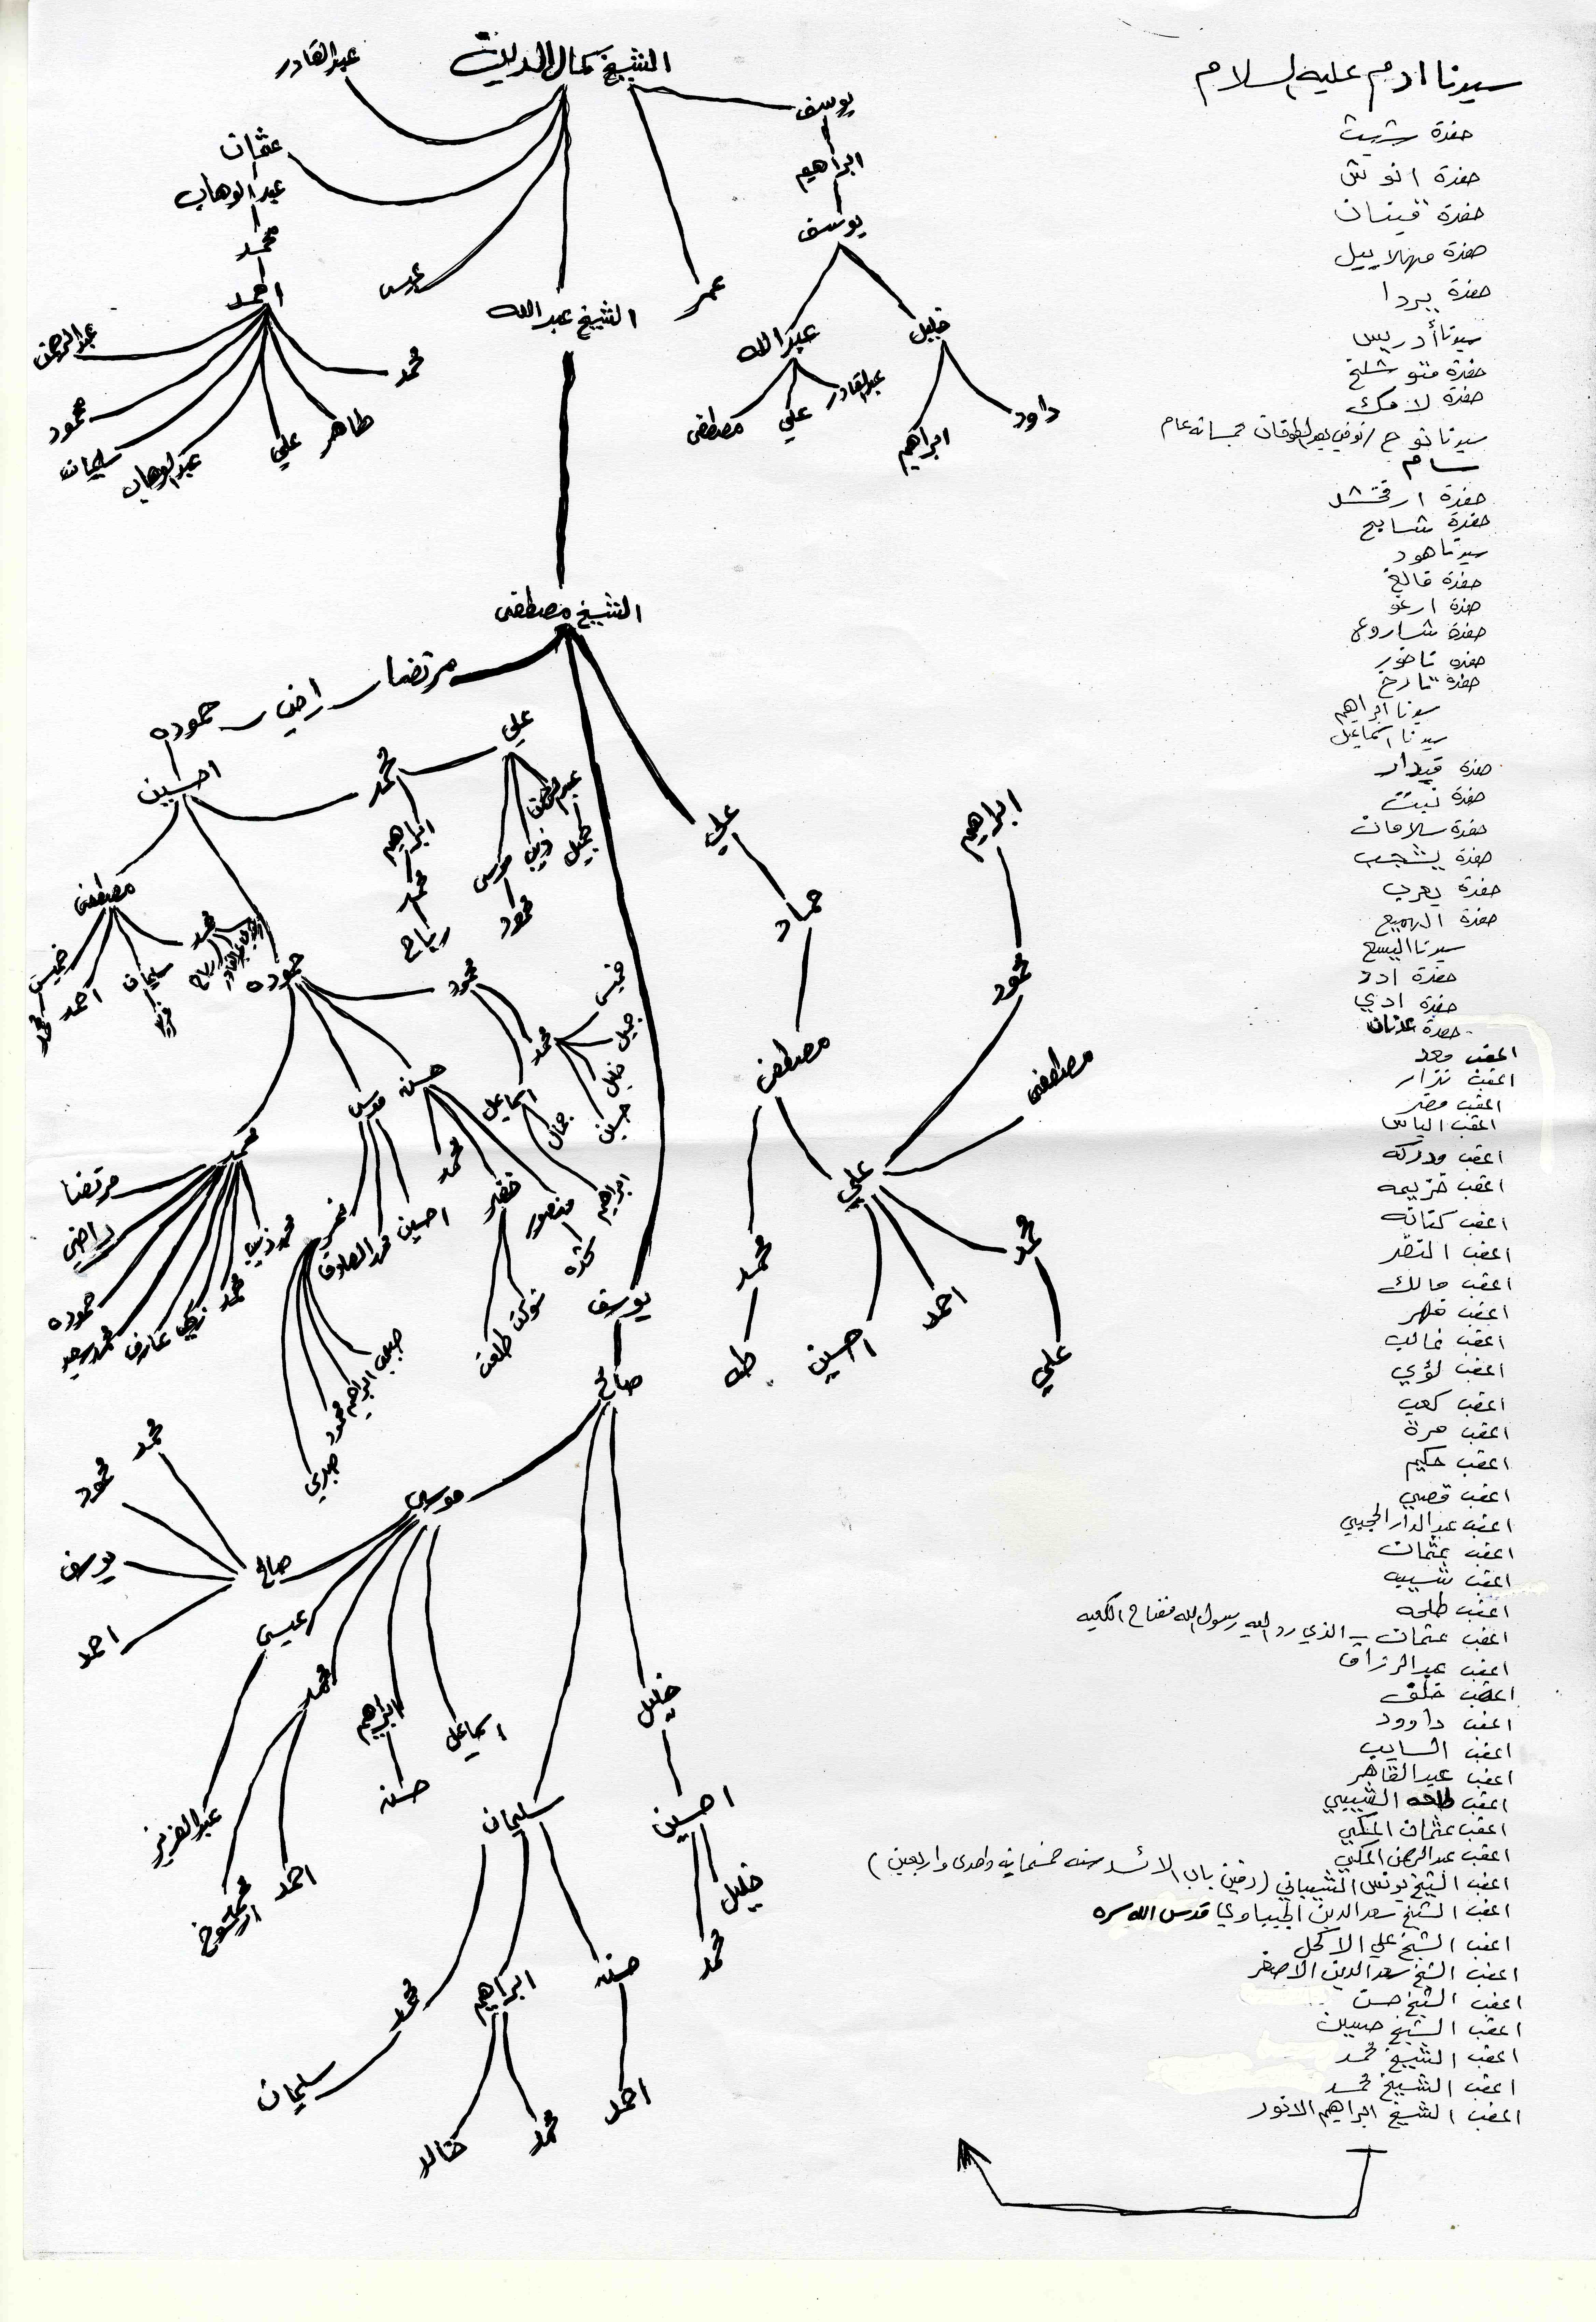 سيدنا ادم عليه السلام
حفدة شيت
حفدة انوش
حفدة قينان
حفدة مهلاييل
حفدة يردا
سيدنا أدريس
حفدة متوشلخ
حفدة لامك
سيدنا نوح /توفي بعد الطوفان خمسمائة عام
سام
حفدة ارفخشد
حفدة شالخ
سيدنا هود
حفدة فالغ
حفدة ارغو
حفدة شاروغ
حفدة ناخور
حفدة تارخ
سيدنا ابراهيم
سيدنا اسماعيل
حفدة قيدار
حفدة نبت
حفدة سلامان
حفدة يشجب
حفدة يعرب
حفدة الهميع
سيدنا اليسع
حفدة ادد
حفدة ادي
حفدة عدنان
اعقب معد
اعقب نزار
اعقب مضر
اعقب الياس
اعقب مدركه
اعقب خزيمه
اعقب كنانه
اعقب النضر
اعقب مالك
اعقب فهر
اعقب غالب
اعقب لؤي
اعقب كعب
اعقب مرة
اعقب حكيم
اعقب قصي
اعقب عبد الدار الحجبي
اعقب عثمان
اعقب شيبه
اعقب طلحه
اعقب عثمان - الذي رد اليه رسول الله مفتاح الكعبه
اعقب عبد الرزاق
اعقب خلف
اعقب داوود
اعقب السايب
اعقب عبد القاهر
اعقب طلحه الشيبي
اعقب عثمان المكي
اعقب عبد الرحمن المكي
اعقب الشيخ يونس الشيباني (دفين باب الاسد سنه خمسمايه واحدى واربعين)
اعقب الشيخ سعد الدين الجيباوي قدس الله سره
اعقب الشيخ علي الاكحل
اعقب الشيخ سعد الدين الاصغر
اعقب الشيخ حسن
اعقب الشيخ حسين
اعقب الشيخ محمد
اعقب الشيخ محمد
اعقب الشيخ ابراهيم الانور
الشيخ كمال الدين
عبد القادر
يوسف
ابراهيم
يوسف
عثمان
عبد الوهاب
محمد
احمد
عيسى
الشيخ عبد الله
عمر
عبد الله
خليل
عبد الرحمن
محمد
محمود
سليمان
عبد الوهاب
علي
طاهر
مصطفى
علي
عبد القادر
ابراهيم
داود
الشيخ مصطفى
مرتضا
راضي
حموده
احسين
محمد
علي
عبد اللطيف
ابراهيم
محمد
رباح
موسى
محمود
ذيب
جميل
علي
حماد
ابراهيم
محمود
مصطفى
مصطفى
علي
مصطفى
خميس
محمد
احمد
سليمان
محمد
رباح
عبد القادر
حموده
محمود
محمد
خميس
جميل
خليل
حسين
اسماعيل
جمال
ابراهيم
حسن
موسى
محمد
خضر
منصور
شوكت
طلعت
محمد
مرتضا
راضي
حموده
عارف
زكي
محمد
احسين
محمد الصادق
ابراهيم
محمود
صبري
محمد
طه
احسين
احمد
محمد
علي
يوسف
صالح
موسى
صالح
محمد
محمود
يوسف
احمد
عيسى
عبد العزيز
محمد
احمد
ابراهيم
حسن
اسماعيل
سليمان
خليل
احسين
خليل
محمد
محمد
سليمان
ابراهيم
خالد
محمد
حسن
احمد